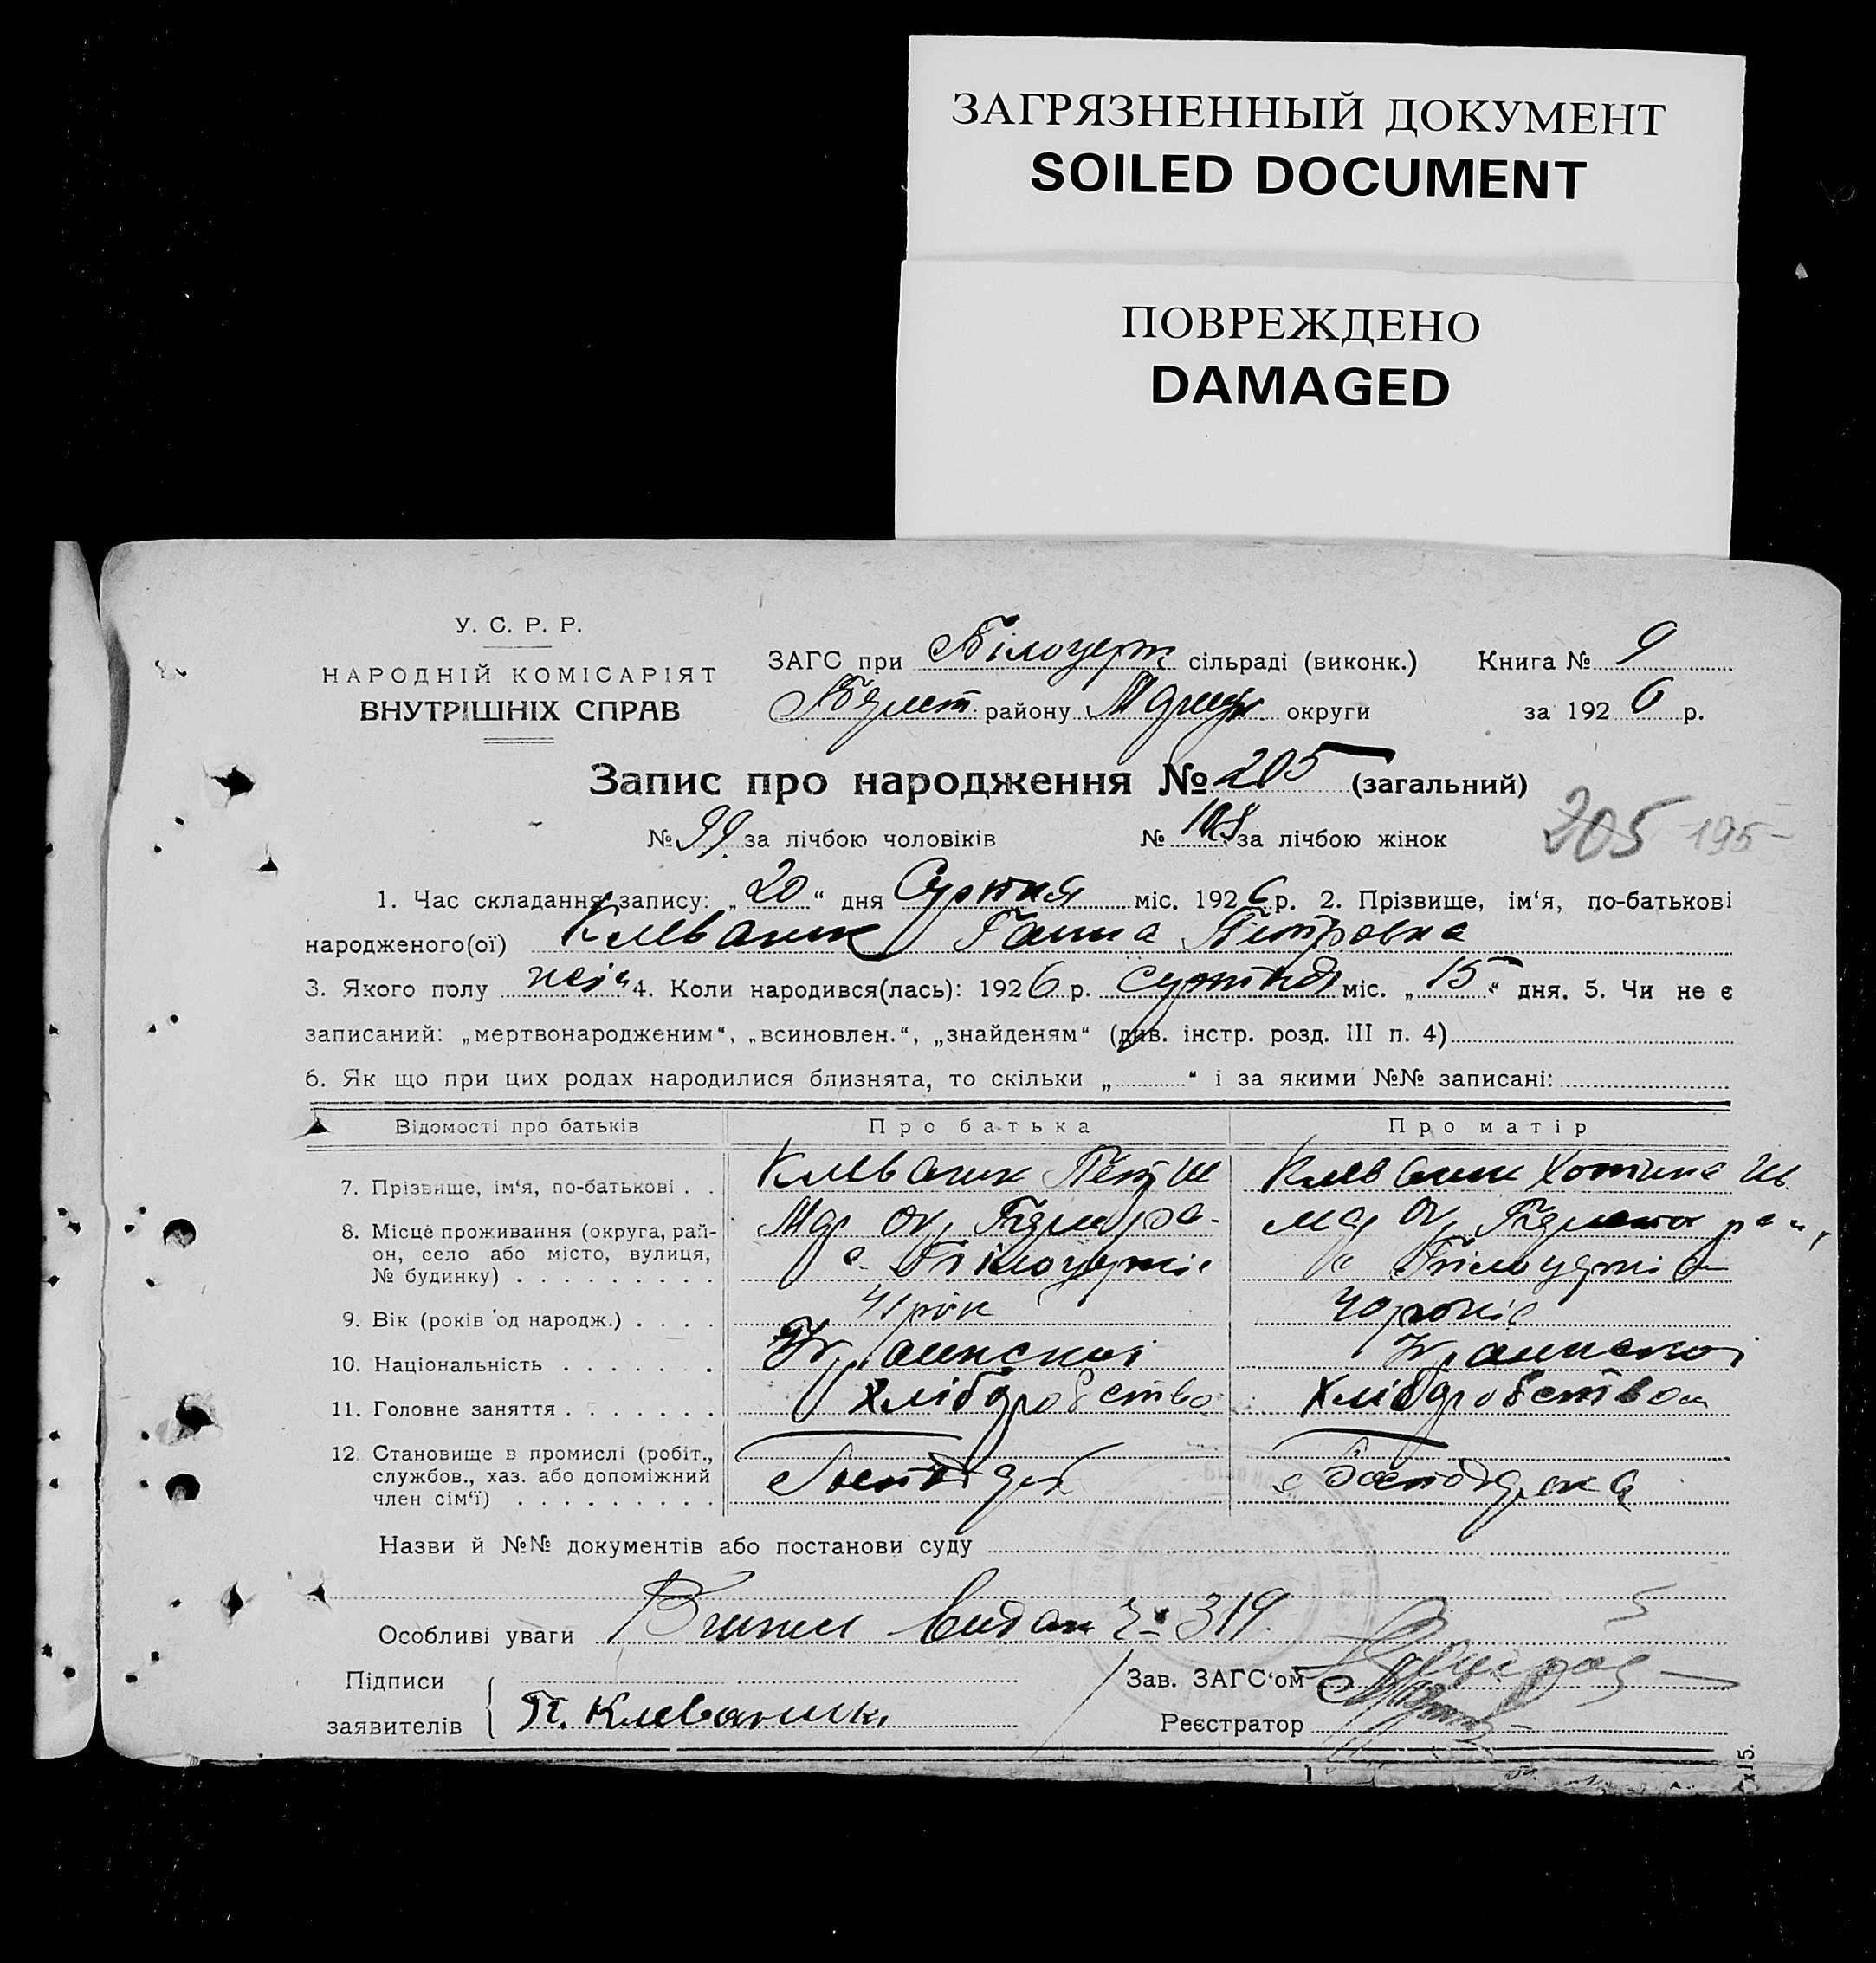 ЗАГРЯЗНЕННЫЙ ДОКУМЕНТ
SOILED DOCUMENT
ПОВРЕЖДЕНО
DAMAGED
У. С. Р. Р.
НАРОДНІЙ КОМІСАРІЯТ
ВНУТРІШНІХ СПРАВ
ЗАГС при Білоцерк сільраді (виконк.) Книга № 9
району округи за 1926 р.
Запис про народження № 205 (загальний)
№ 99 за лічбою чоловіків № за лічбою жінок 205 195
1. Час складання запису: „20“ дня Серпня міс. 1926 р. 2. Прізвище, ім‘я, по-батькові
народженого(ої) Клеваник Ганна Петровна
3. Якого полу жін 4. Коли народився(лась): 1926 р. серпня міс. „15“ дня. 5. Чи не є
записаний: „мертвонародженим“, „всиновлен.“, „знайденям“ (див. інстр. розд. III п. 4)
6. Як що при цих родах народилися близнята, то скільки „ “ і за якими №№ записані:
Відомості про батьків Про батька Про матір
7. Прізвище, ім‘я, по-батькові . . Клеваник Клеваник
8. Місце проживання (округа, рай-
он, село або місто, вулиця,
№ будинку)
9. Вік (років од народж.) . . . . 41 рік 40 років
10. Національність Украинскої
11. Головне заняття Хліборобство Хліборобством
12. Становище в промислі (робіт.,
службов., хаз. або допоміжний
член сім‘ї) Господар Господарка
Назви й №№ документів або постанови суду
Особливі уваги Випис видан № 319.
Підписи
заявителів П. Клеваник
Зав. ЗАГС‘ом
Реєстратор